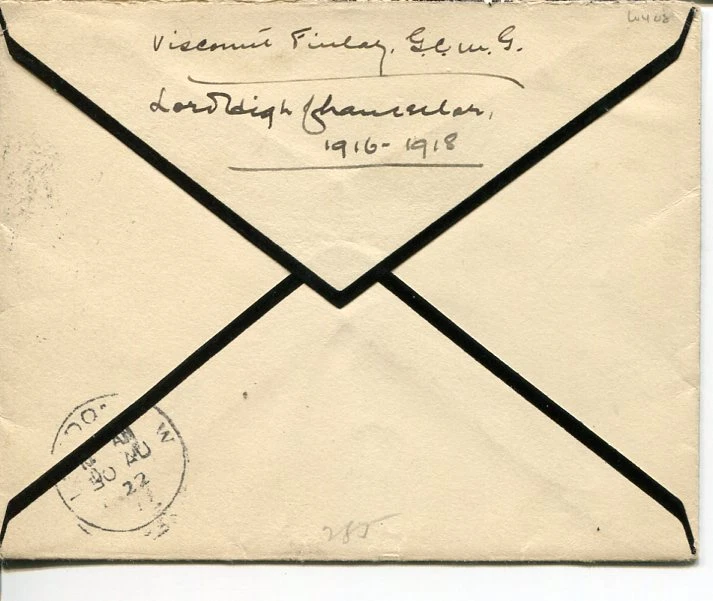 Viscount Finlay, G.C.M.G.
Lord High Chancellor,
1916-1918
W
22
285